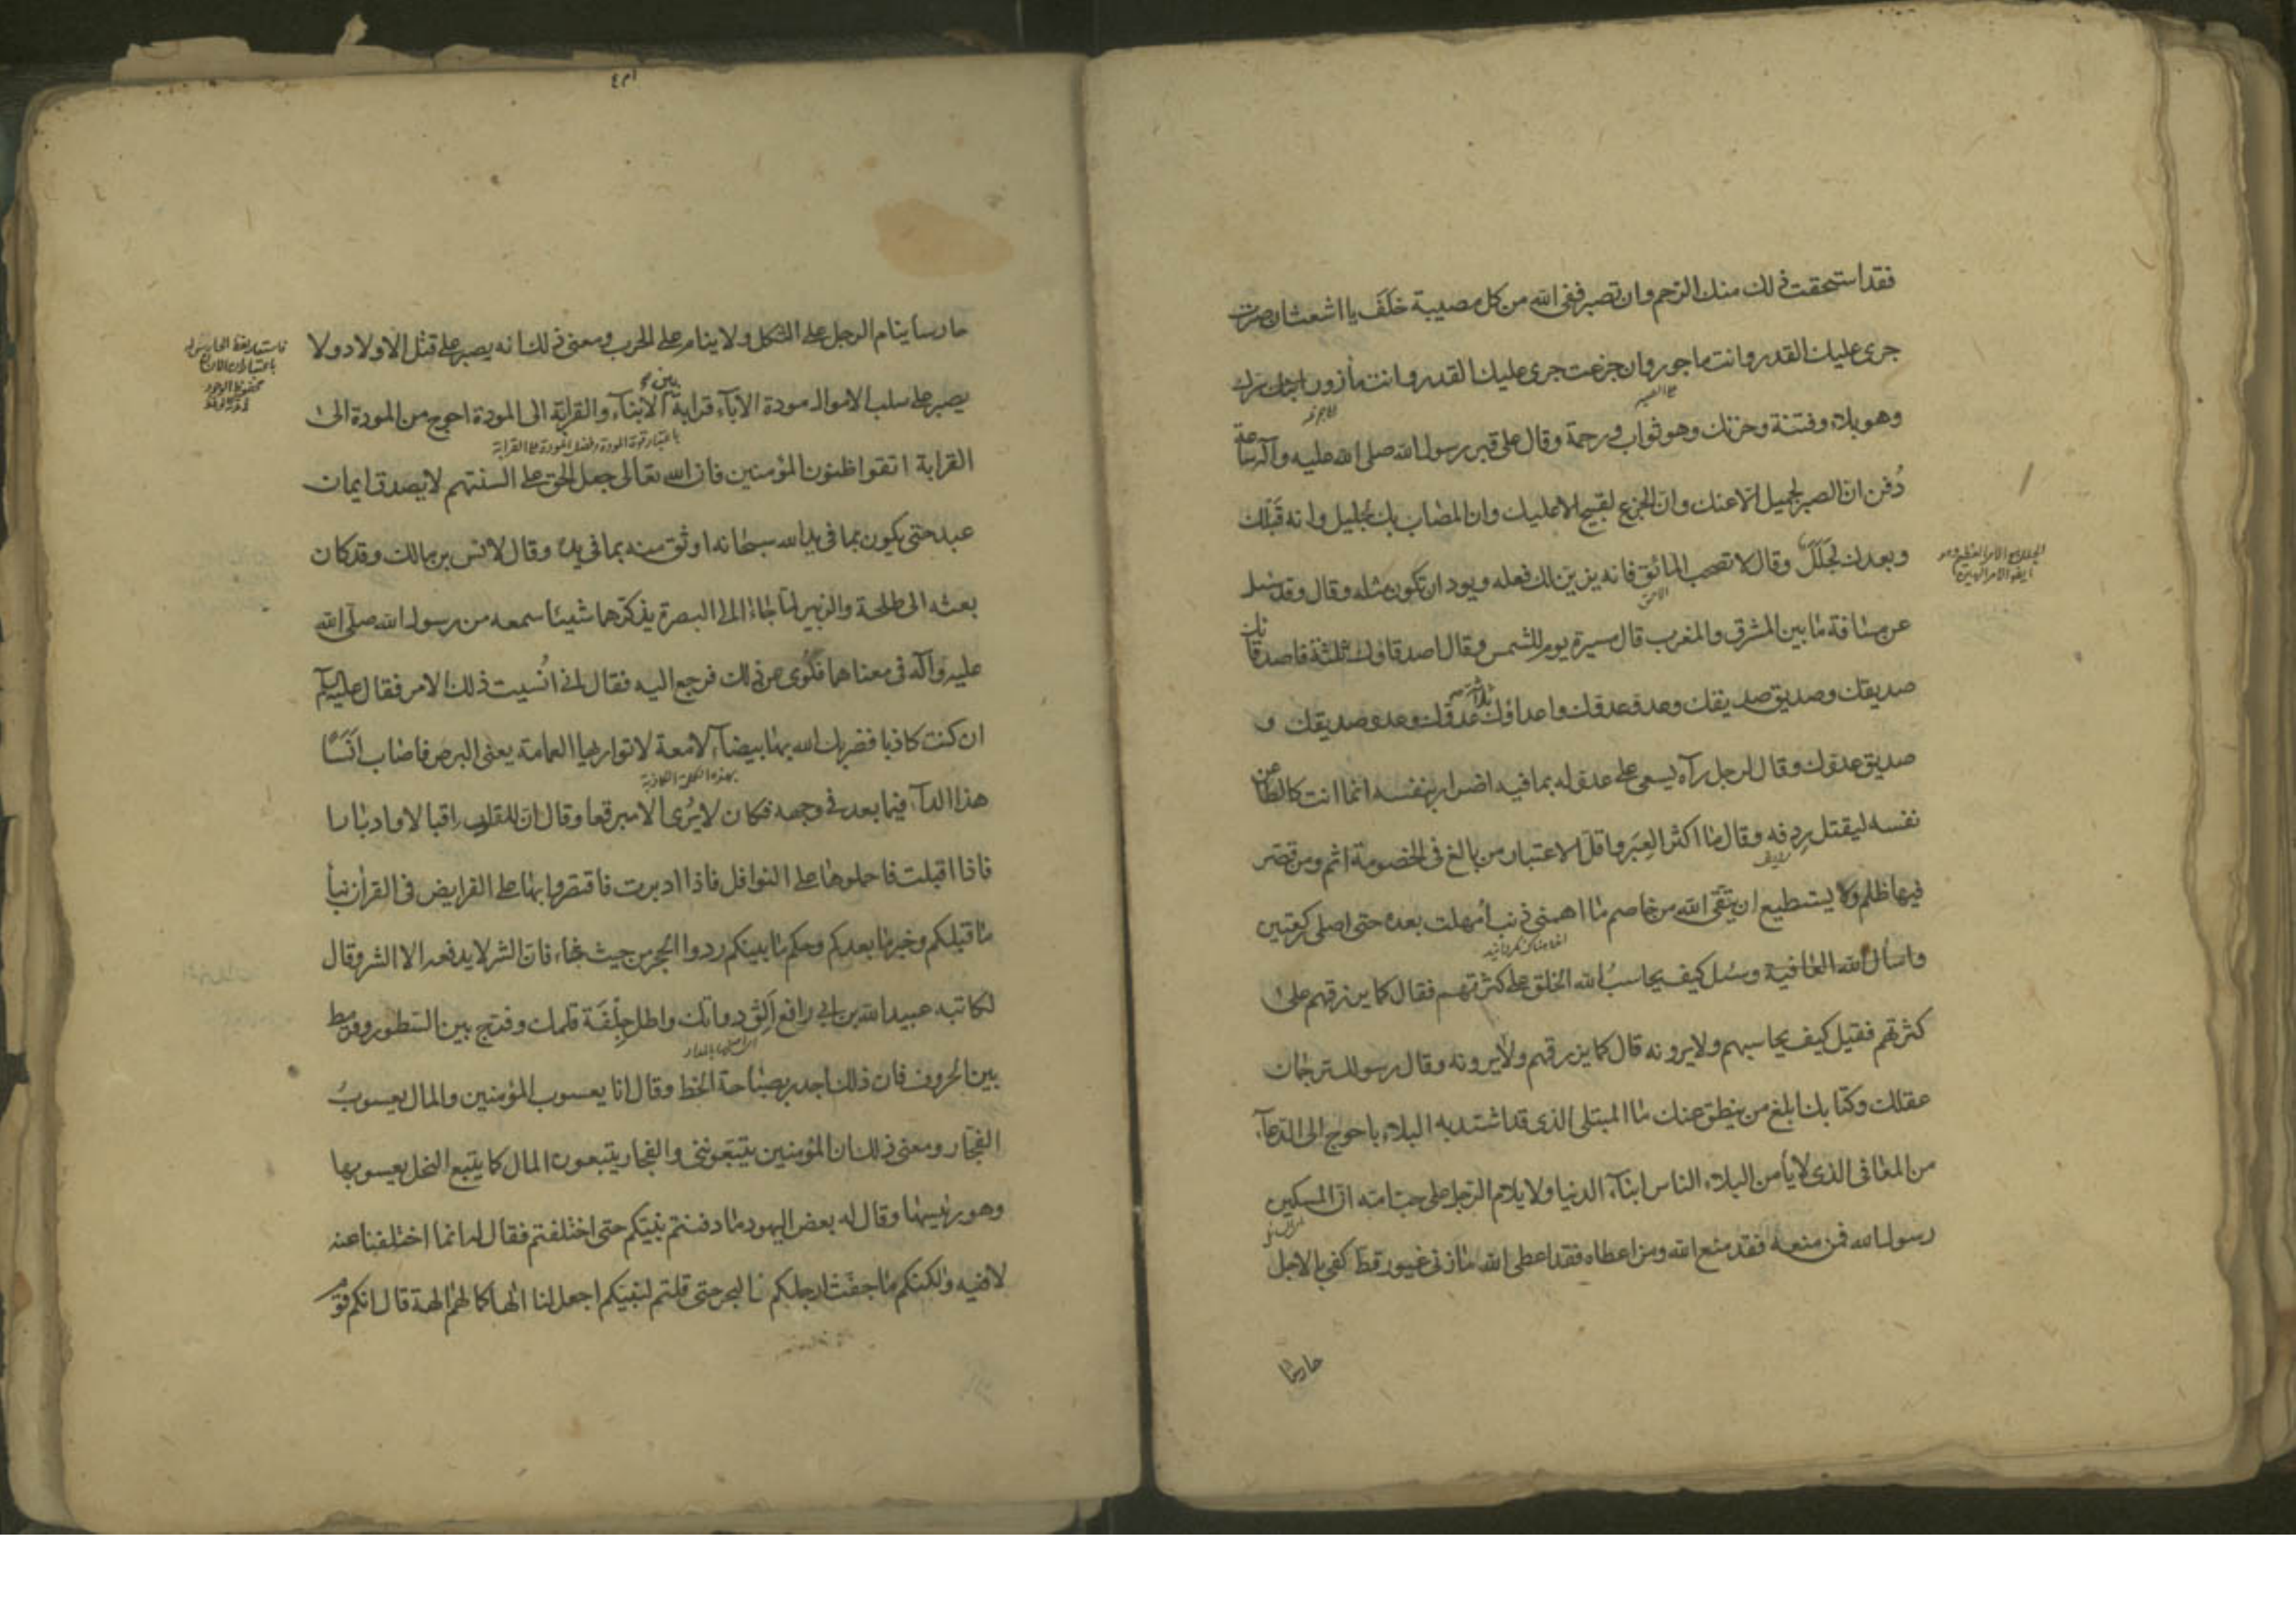 فقد استحقت ذلك منك الرحم وان تصبر ففى الله من كل مصيبة خلف يا اشعث ان صبرت
جرى عليك القدر وانت ماجور وان جزعت جرى عليك القدر وانت مأزور ابنك سرك
وهو بلاء وفتنة وحزنك وهو ثواب ورحمة وقال على قبر رسول الله صلى الله عليه وآله ساعة
دُفن ان الصبر لجميل الا عنك وان الجزع لقبيح الا عليك وان المصاب بك لجليل وانه قبلك
وبعدك لجلل وقال لا تصحب المائق فانه يزين لك فعله ويود ان تكون مثله وقال وقد سئل
عن مسافة ما بين المشرق والمغرب قال مسيرة يوم للشمس وقال اصدقاؤك ثلثة فاصدقاؤك
صديقك وصديق صديقك وعدو عدوك واعداؤك ثلاثة عدوك وعدو صديقك و
صديق عدوك وقال لرجل رآه يسعى على عدو له بما فيه اضرار بنفسه انما انت كالطاعن
نفسه ليقتل رِدفه وقال ما اكثر العِبَر واقل الاعتبار من بالغ فى الخصومة اثم ومن قصر
فيها ظلم ولا يستطيع ان يتقى الله من خاصم ما اهمنى ذنب أمهلت بعده حتى اصلى ركعتين
واسأل الله العافية وسئل كيف يحاسبُ الله الخلق على كثرتهم فقال كما يرزقهم على
كثرتهم فقيل كيف يحاسبهم ولا يرونه قال كما يرزقهم ولا يرونه وقال رسولك ترجمان
عقلك وكتابك ابلغ من ينطق عنك ما المبتلى الذى قد اشتد به البلاء باحوج الى الدعآء
من المعافى الذى لا يأمن البلاء الناس ابنآء الدنيا ولا يلام الرجل على حب امه ان المسكين
رسول الله فمن منعه فقد منع الله ومن اعطاه فقد اعطى الله ما زنى غيور قط كفى بالاجل
حارسا
حارسا ينام الرجل على الثكل ولا ينام على الحرب ومعنى ذلك انه يصبر على قتل الاولاد ولا
يصبر على سلب الاموال مودة الآباء قرابة بين الابناء والقرابة الى المودة احوج من المودة الى
باعتبار قوة المودة وفضل المودة على القرابة
القرابة اتقوا ظنون المؤمنين فان الله تعالى جعل الحق على السنتهم لا يصدق ايمان
عبد حتى يكون بما فى يد الله سبحانه اوثق منه بما فى يده وقال لانس بن مالك وقد كان
بعثه الى طلحة والزبير لما جاء الى البصرة يذكرهما شيئا سمعه من رسول الله صلى الله
عليه وآله فى معناهما فلوى عن ذلك فرجع اليه فقال انى أنسيت ذلك الامر فقال عليه السلام
ان كنت كاذبا فضربك الله بها بيضآء لامعة لا تواريها العمامة يعنى البرص فاصاب انسًا
بهذه الكلمة الكاذبة
هذا الدآء فيما بعد فى وجهه فكان لا يُرى الا مبرقعا وقال ان للقلوب اقبالا وادبارا
فاذا اقبلت فاحملوها على النوافل فاذا ادبرت فاقتصروا بها على الفرايض فى القرآن نبأ
ما قبلكم وخبر ما بعدكم وحكم ما بينكم ردوا الحجر من حيث جاء فان الشر لا يدفعه الا الشر وقال
لكاتبه عبيد الله بن ابى رافع اَلِق دواتك واطل جِلْفَة قلمك وفرّج بين السطور وقرمط
بين الحروف فان ذلك اجدر بصباحة الخط وقال انا يعسوب المؤمنين والمال يعسوبُ
الفجار ومعنى ذلك ان المؤمنين يتبعوننى والفجار يتبعون المال كما يتبع النحل يعسوبها
وهو رئيسها وقال له بعض اليهود ما دفنتم نبيكم حتى اختلفتم فقال له انما اختلفنا عنه
لا فيه ولكنكم ما جفّت ارجلكم من البحر حتى قلتم لنبيكم اجعل لنا الها كما لهم الهة قال انكم قوم